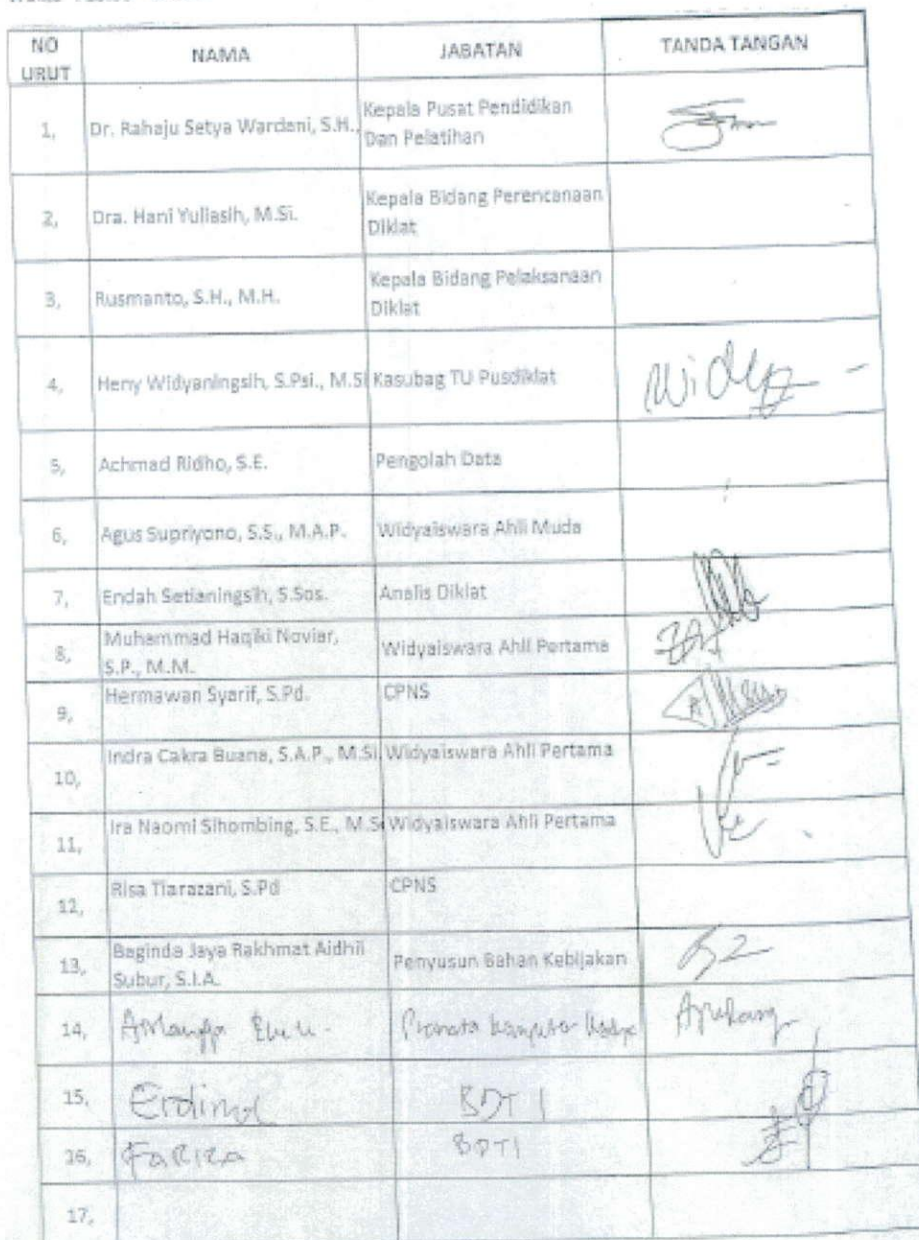 NO URUT NAMA JABATAN TANDA TANGAN
1, Dr. Rahaju Setya Wardani, S.H., Kepala Pusat Pendidikan
Dan Pelatihan
2, Dra. Hani Yuliasih, M.Si. Kepala Bidang Perencanaan
Diklat
3, Rusmanto, S.H., M.H. Kepala Bidang Pelaksanaan
Diklat
4, Heny Widyaningsih, S.Psi., M.Si Kasubag TU Pusdiklat
5, Achmad Ridho, S.E. Pengolah Data
6, Agus Supriyono, S.S., M.A.P. Widyaiswara Ahli Muda
7, Endah Setianingsih, S.Sos. Analis Diklat
8, Muhammad Haqiki Noviar,
S.P., M.M. Widyaiswara Ahli Pertama
9, Hermawan Syarif, S.Pd. CPNS
10, Indra Cakra Buana, S.A.P., M.Si. Widyaiswara Ahli Pertama
11, Ira Naomi Sihombing, S.E., M.S Widyaiswara Ahli Pertama
12, Risa Tiarazani, S.Pd CPNS
13, Baginda Jaya Rakhmat Aidhil
Subur, S.I.A. Penyusun Bahan Kebijakan
14, Pranata
15, Erdina BDTI
16, Fariza BDTI
17,